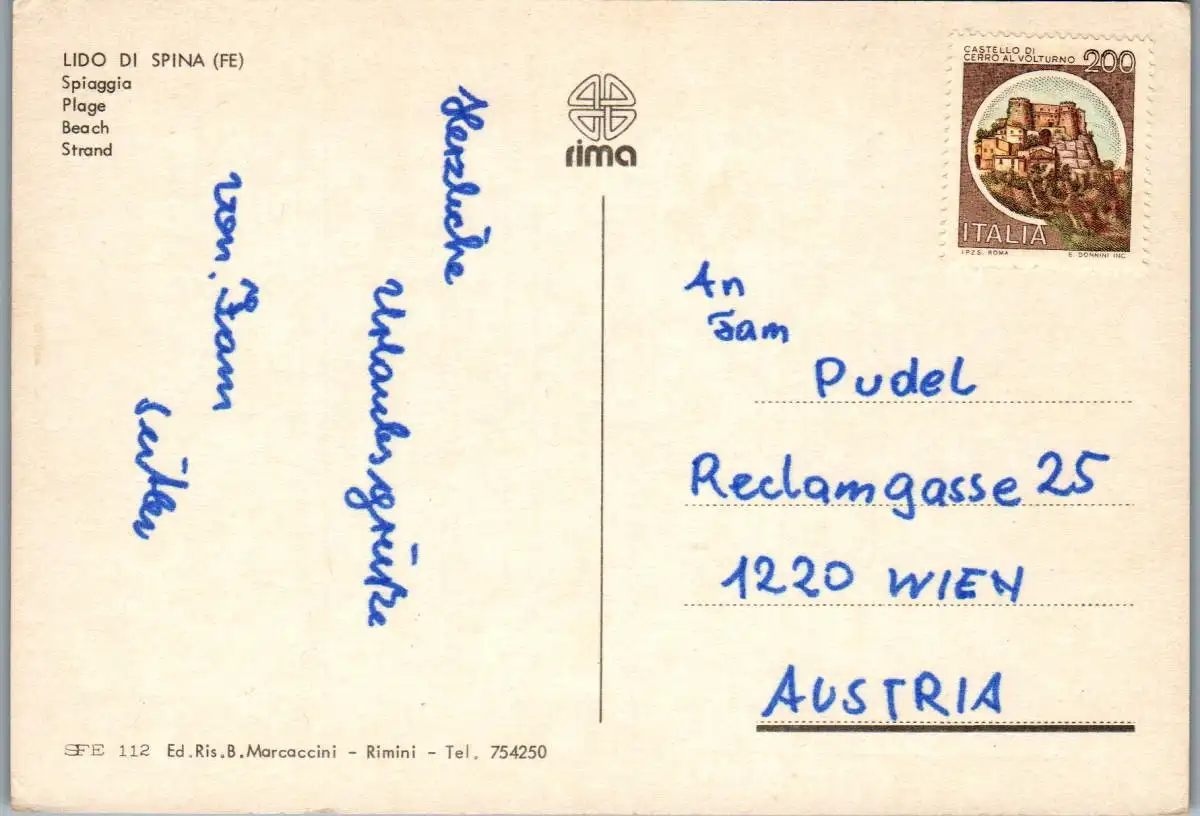 LIDO DI SPINA (FE)
Spiaggia
Plage
Beach
Strand
rima
CASTELLO DI
CERRO AL VOLTURNO 200
ITALIA
I.P.Z.S. ROMA E. DONNINI INC.
Herzliche
Urlaubsgrüße
von. Fam
An
Fam
Pudel
Reclamgasse 25
1220 WIEN
AUSTRIA
SFE 112 Ed.Ris.B.Marcaccini - Rimini - Tel. 754250